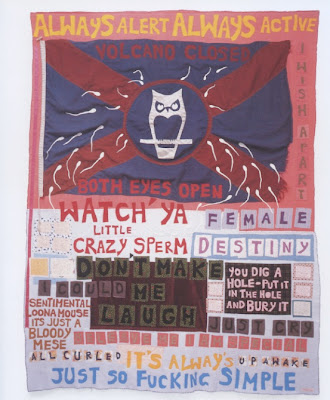 ALWAYS ALERT ALWAYS ACTIVE
VOLCANO CLOSED
I WISH APART
BOTH EYES OPEN
WATCH'YA
LITTLE
CRAZY SPERM
FEMALE
DESTINY
DON'T MAKE
ME
LAUGH
I COULD
JUST CRY
YOU DIG A
HOLE-PUT IT
IN THE HOLE
AND BURY IT
SENTIMENTAL
LOONA HOUSE
ITS JUST A
BLOODY
MESE
ALL CURLED
IT'S ALWAY'S
UP AWAKE
JUST SO FUCKING SIMPLE